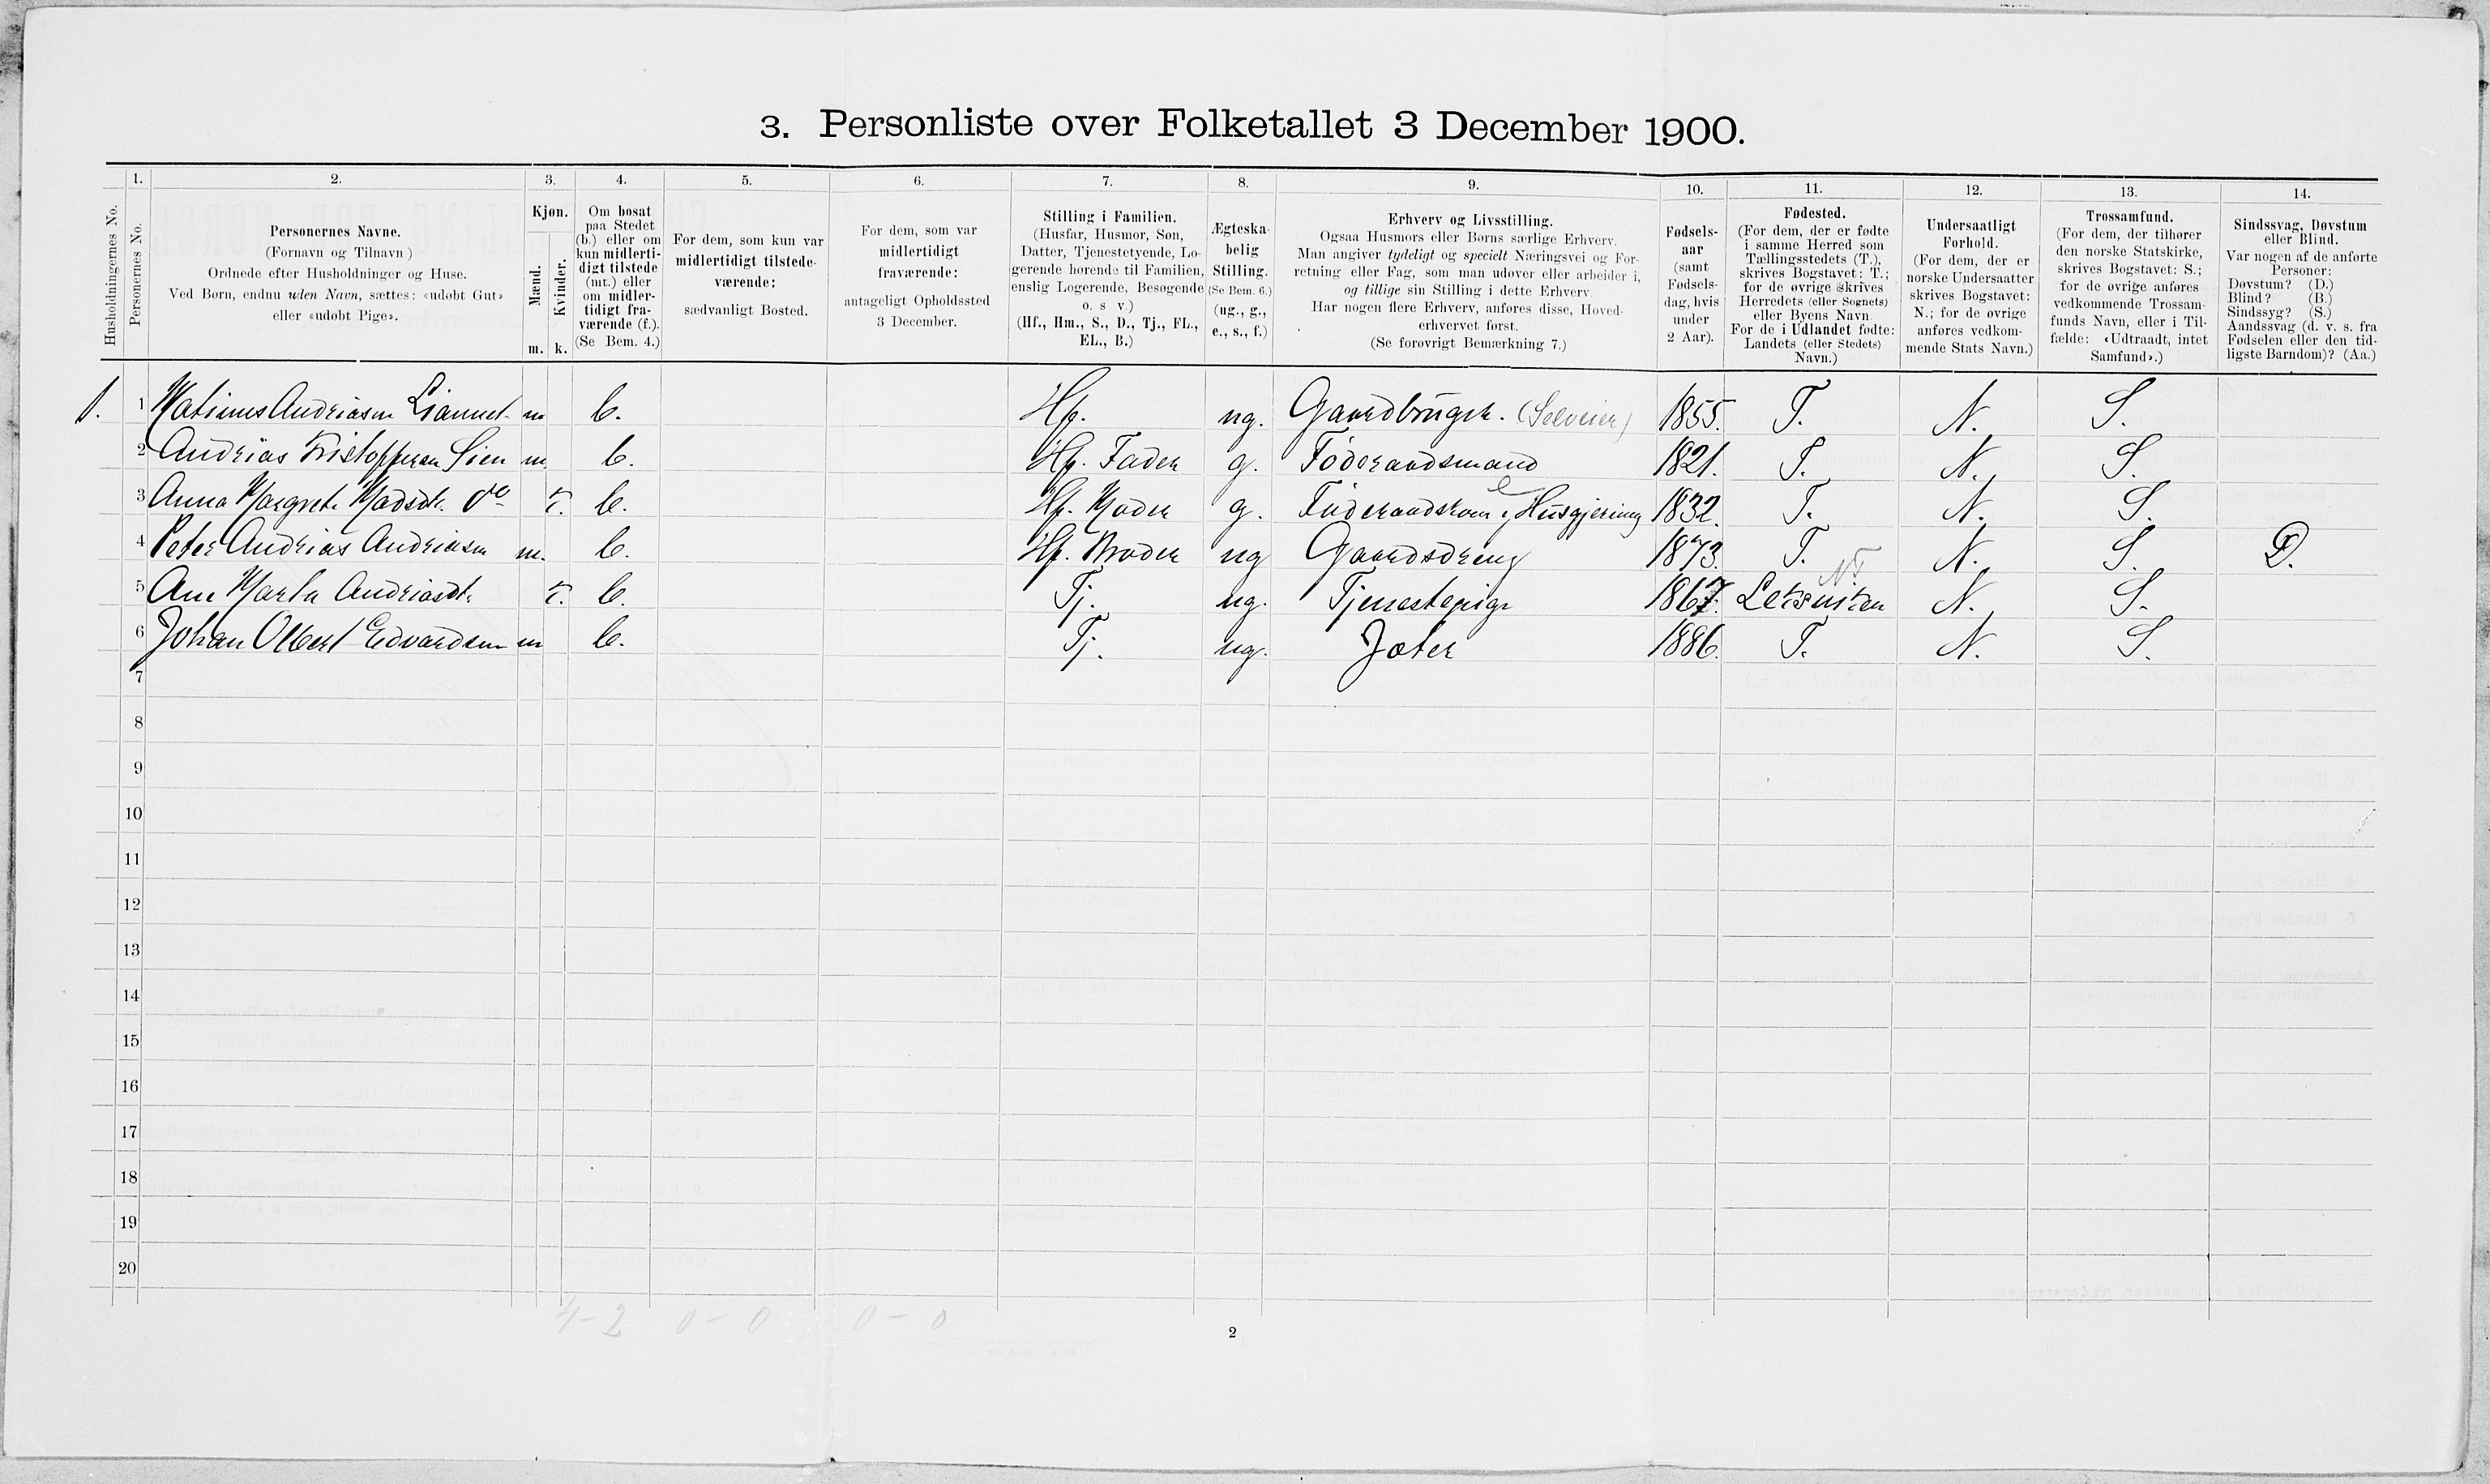 3. Personliste over Folketallet 3 December 1900.
Husholdningernes No.
1.
Personernes No.
2.
Personernes Navne.
(Fornavn og Tilnavn)
Ordnede efter Husholdninger og Huse.
Ved Børn, endnu uden Navn, sættes: «udøbt Gut»
eller «udøbt Pige».
3.
Kjøn.
Mænd.
Kvinder.
m. k.
4.
Om bosat
paa Stedet
(b.) eller om
kun midlerti-
digt tilstede
(mt.) eller
om midler-
tidigt fra-
værende (f.).
(Se Bem. 4.)
5.
For dem, som kun var
midlertidigt tilstede-
værende:
sædvanligt Bosted.
6.
For dem, som var
midlertidigt
fraværende:
antageligt Opholdssted
3 December.
7.
Stilling i Familien.
(Husfar, Husmor, Søn,
Datter, Tjenestetyende, Lo-
gerende hørende til Familien,
enslig Logerende, Besøgende
o. s v.)
(Hf., Hm., S., D., Tj., FL.,
EL., B.)
8.
Ægteska-
belig
Stilling.
(Se Bem. 6.)
(ug., g.,
e., s., f.)
9.
Erhverv og Livsstilling.
Ogsaa Husmors eller Børns særlige Erhverv.
Man angiver tydeligt og specielt Næringsvei og For-
retning eller Fag, som man udøver eller arbeider i,
og tillige sin Stilling i dette Erhverv.
Har nogen flere Erhverv, anføres disse, Hoved-
erhvervet først.
(Se forøvrigt Bemærkning 7.)
10.
Fødsels-
aar
(samt
Fødsels-
dag, hvis
under
2 Aar).
11.
Fødested.
(For dem, der er fødte
i samme Herred som
Tællingsstedets (T.),
skrives Bogstavet: T.;
for de øvrige skrives
Herredets (eller Sognets)
eller Byens Navn.
For de i Udlandet fødte:
Landets (eller Stedets)
Navn.)
12.
Undersaatligt
Forhold.
(For dem, der er
norske Undersaatter
skrives Bogstavet:
N.; for de øvrige
anføres vedkom-
mende Stats Navn.)
13.
Trossamfund.
(For dem, der tilhører
den norske Statskirke,
skrives Bogstavet: S.;
for de øvrige anføres
vedkommende Trossam-
funds Navn, eller i Til-
fælde: «Udtraadt, intet
Samfund».)
14.
Sindssvag, Døvstum
eller Blind.
Var nogen af de anførte
Personer:
Døvstum? (D.)
Blind? (B.)
Sindssyg? (S.)
Aandssvag (d. v. s. fra
Fødselen eller den tid-
ligste Barndom)? (Aa.)
1. 1 Matinus Andriasen m b. Hf. ug. Gaardbruger. (Selveier) 1855. T. N. S.
2 Andrias Kristoffersen Lien m. b. Hf. Fader g. Føderaadsmand 1821. T. N. S.
3 Anna Margrete Madsdtr. do k. b. Hf. Moder g. Føderaadskone, Husgjerning 1832. T. N. S.
4 Peter Andrias Andriasen m. b. Hf. Broder ug Gaardsdreng 1873. T. N. S. D.
5 Ane Marta Andriasdtr. k. b. Tj. ug. Tjenestepige 1867. Leksviken NT N. S.
6 Johan Olbert Edvardsen m b. Tj. ug. Jæter 1886. T. N. S.
7
8
9
10
11
12
13
14
15
16
17
18
19
20
4-2 0-0 0-0
2